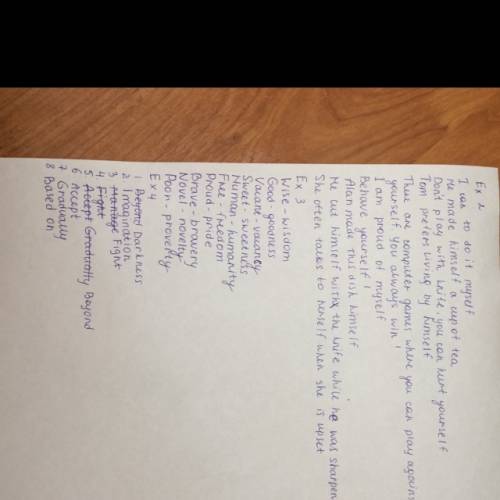 Ex 2
I can to do it myself
He made himself a cup of tea
Don't play with knife, you can hurt yourself
Tom prefers living by himself
There are computer games where you can play agains
yourself. You always win!
I am proud of myself
Behave yourself!
Alan made this dish himself
He cut himself with the knife while he was sharpen
She often talks to herself when she is upset
Ex 3
Wise - wisdom
Good - goodness
Vacant - vacancy
Sweet - sweetness
Human - humanity
Free - freedom
Proud - pride
Brave - bravery
Novel - novelty
Poor - proverty
Ex 4
1 Beyond Darkness
2 Imagination
3 Manage Fight
4 Fight
5 Accept Gradually Beyond
6 Accept
7 Gradually
8 Based on